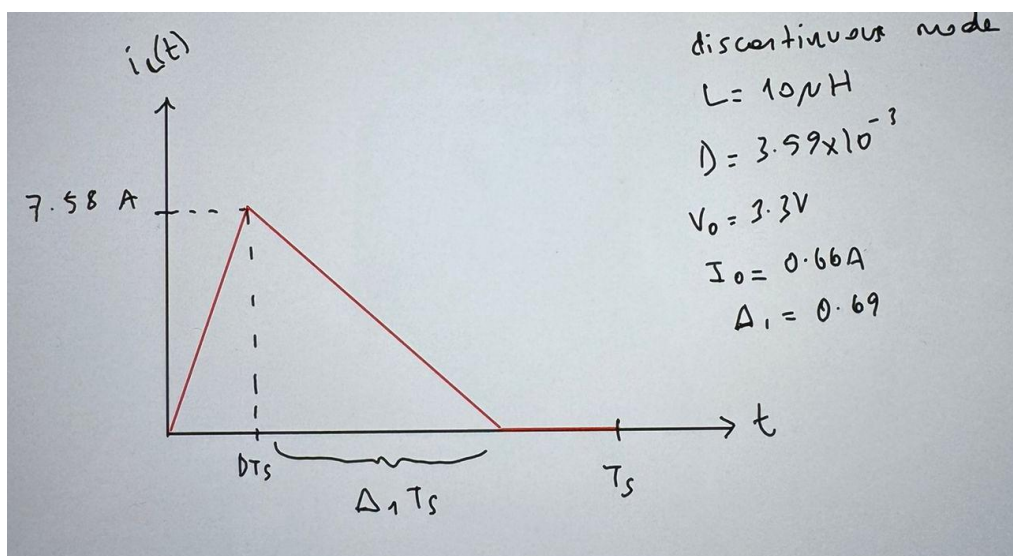 iL(t)
7.58 A
DTs
Δ1Ts
Ts
t
discontinuous mode
L = 10μH
D = 3.59x10⁻³
Vo = 3.3V
Io = 0.66A
Δ1 = 0.69